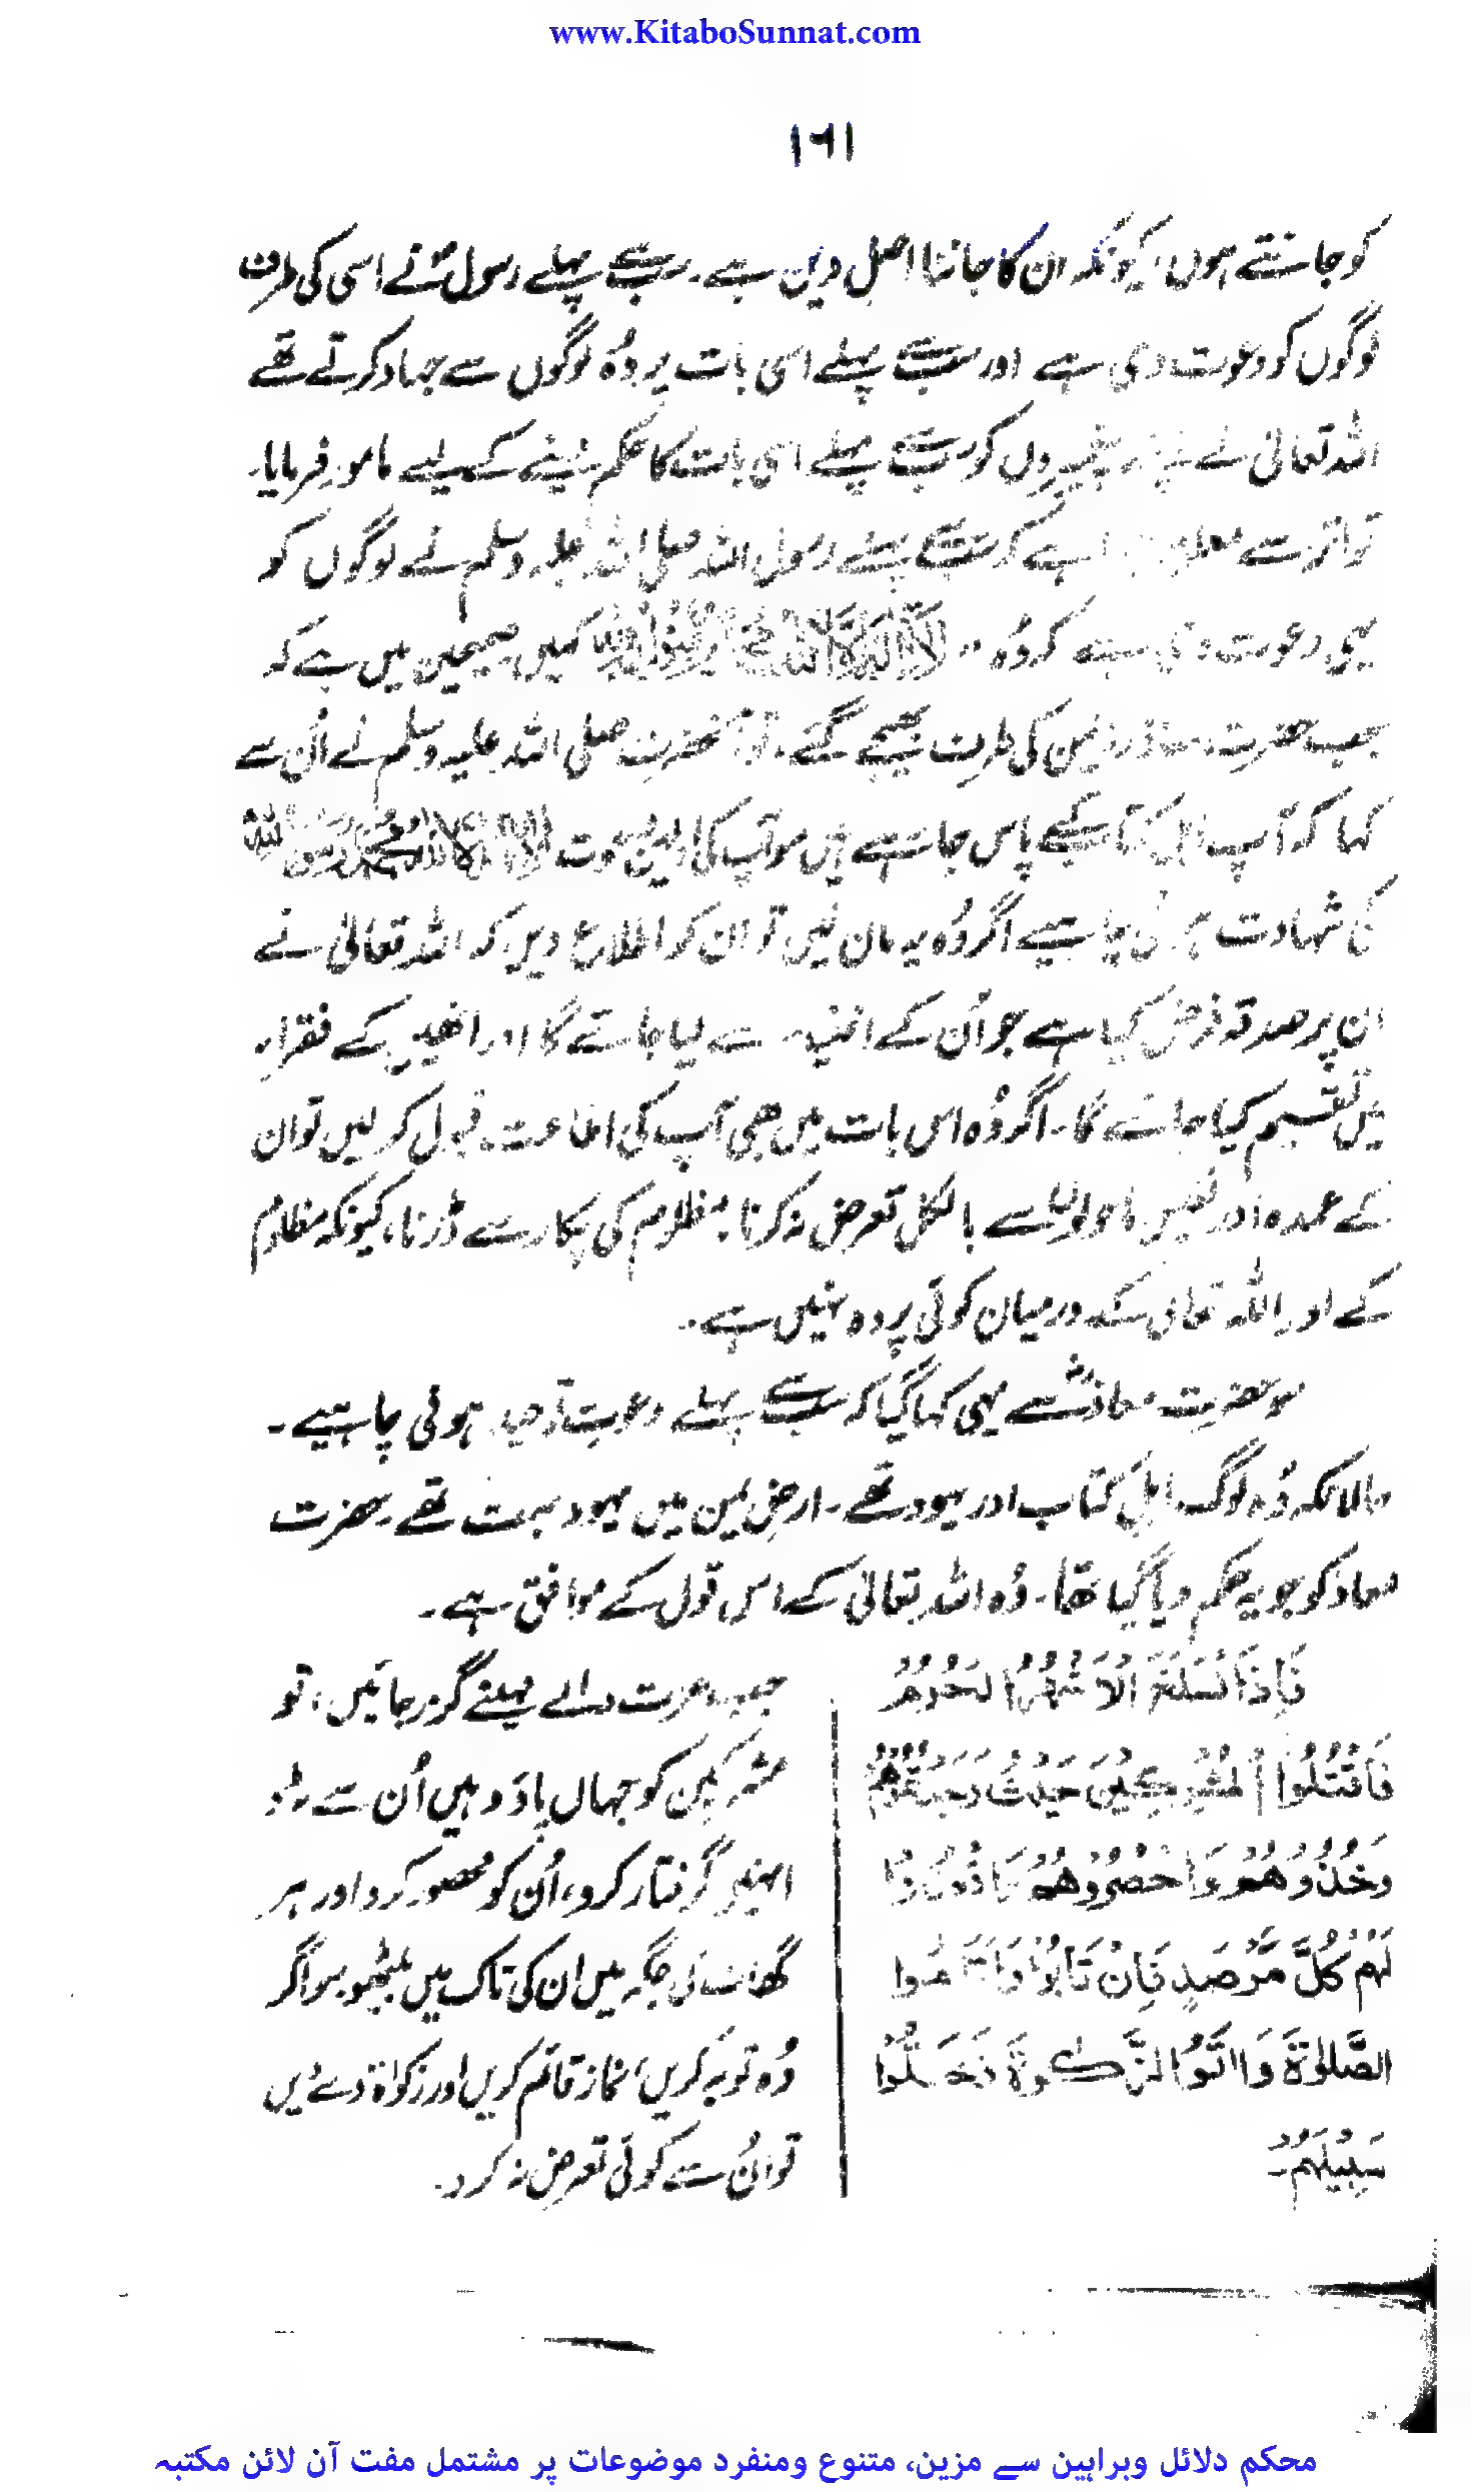 www.KitaboSunnat.com
۱۶۱
کو جانتے ہوں، کیونکہ ان کا جاننا اصل دین ہے۔ سب سے پہلے رسولؐ نے اسی کی طرف
لوگوں کو دعوت دی ہے اور سب سے پہلے اسی بات پر وُہ لوگوں سے جہاد کرتے تھے
اللہ تعالیٰ نے پیغمبروں کو سب سے پہلے اسی بات کا حکم دینے کے لیے مامور فرمایا۔
تواتر سے ہے کہ سب سے پہلے رسول اللہ صلی اللہ علیہ وسلم نے لوگوں کو
یہی دعوت دی ہے کہ وُہ لَا اِلٰہَ اِلَّا اللہُ مُحَمَّدٌ رَّسُوْلُ اللہِ کہیں، صحیحین میں ہے کہ
جب حضرت یمن کی طرف بھیجے گئے۔ تو آنحضرت صلی اللہ علیہ وسلم نے اُن سے
کہا کہ آپ اہل کتاب کے پاس جا رہے ہیں سو آپ کی اولین دعوت لَا اِلٰہَ اِلَّا اللہُ مُحَمَّدٌ رَّسُوْلُ اللہِ
کی شہادت ہونی چاہیے اگر وُہ یہ مان لیں تو ان کو اطلاع دیں کہ اللہ تعالیٰ نے
ان پر صدقہ فرض کیا ہے جو اُن کے اغنیاء سے لیا جائے گا اور انھیں کے فقراء
میں تقسیم کیا جائے گا۔ اگر وُہ اس بات میں بھی آپ کی اطاعت قبول کر لیں تو ان
کے عمدہ اور نفیس مالوں سے بالکل تعرض نہ کرنا، مظلوم کی پکار سے ڈرنا، کیونکہ مظلوم
کے اور اللہ تعالیٰ کے درمیان کوئی پردہ نہیں ہے۔
سو حضرت معاذؓ سے یہی کہا گیا کہ سب سے پہلے دعوت توحید ہونی چاہیے۔
حالانکہ وُہ لوگ اہلِ کتاب اور یہود تھے۔ ارضِ یمن میں یہود بہت تھے۔ حضرت
معاذ کو جو یہ حکم دیا گیا تھا۔ وُہ اللہ تعالیٰ کے اس قول کے موافق ہے۔
فَاِذَا انْسَلَخَ الْاَشْهُرُ الْحُرُمُ
فَاقْتُلُوا الْمُشْرِكِيْنَ حَيْثُ وَجَدْتُّمُوْهُمْ
وَخُذُوْهُمْ وَاحْصُرُوْهُمْ وَاقْعُدُوْا
لَهُمْ كُلَّ مَرْصَدٍ فَاِنْ تَابُوْا وَاَقَامُوا
الصَّلٰوةَ وَاٰتَوُا الزَّكٰوةَ فَخَلُّوْا
سَبِيْلَهُمْ۔
جب حرمت والے مہینے گزر جائیں، تو
مشرکین کو جہاں پاؤ وہیں اُن سے لڑو
انہیں گرفتار کرو، اُن کو محصور کرو اور ہر
گھات کی جگہ میں ان کی تاک میں بیٹھو سو اگر
وُہ توبہ کریں، نماز قائم کریں اور زکوٰۃ دے دیں
تو اُن سے کوئی تعرض نہ کرو۔
محکم دلائل وبراہین سے مزین، متنوع ومنفرد موضوعات پر مشتمل مفت آن لائن مکتبہ